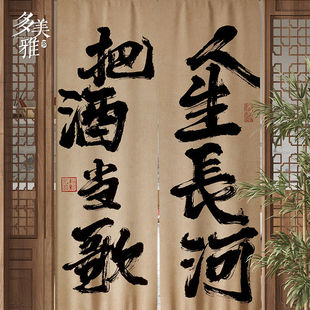 多美雅
人生長河
把酒当歌